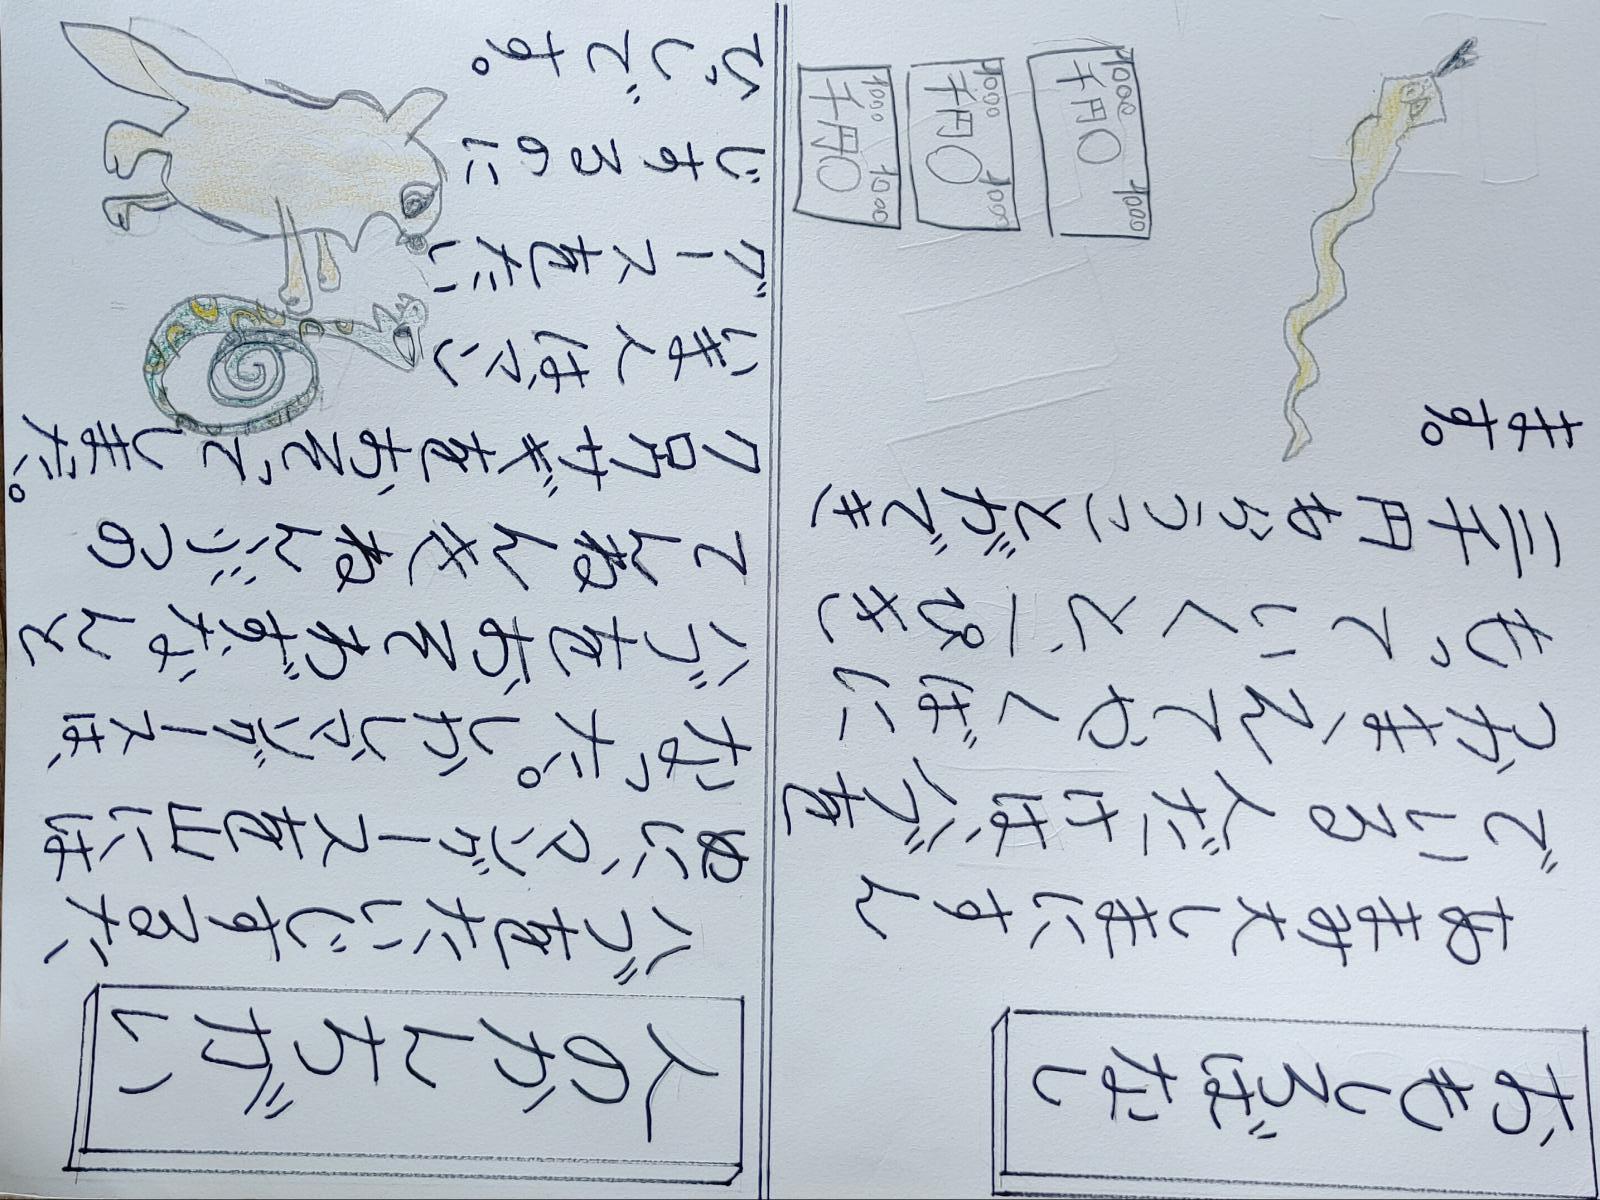 おもしろばなし
あまみ大しまにすん
でいる人だけは、ハブを
つかまえてやくばに
もっていくと、1ぴき
三千円もらうことができ
ます。
1000 千円 1000
1000 千円 1000
1000 千円 1000
人のかんちがい
ハブをたいじするた
めに、マングースを山には
なった。しかしマングースは
ハブをおそわず、なんと
てんねんきねんぶつの
クロウサギをおそってしまった。
いまではマン
グースをたい
じするのに
ひっしです。